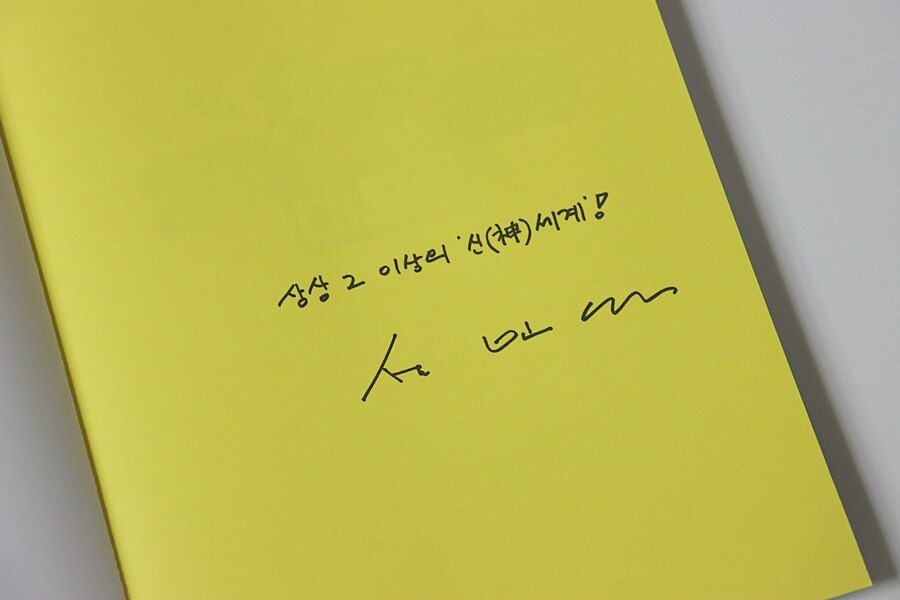 상상 그 이상의 '신(神)세계'!